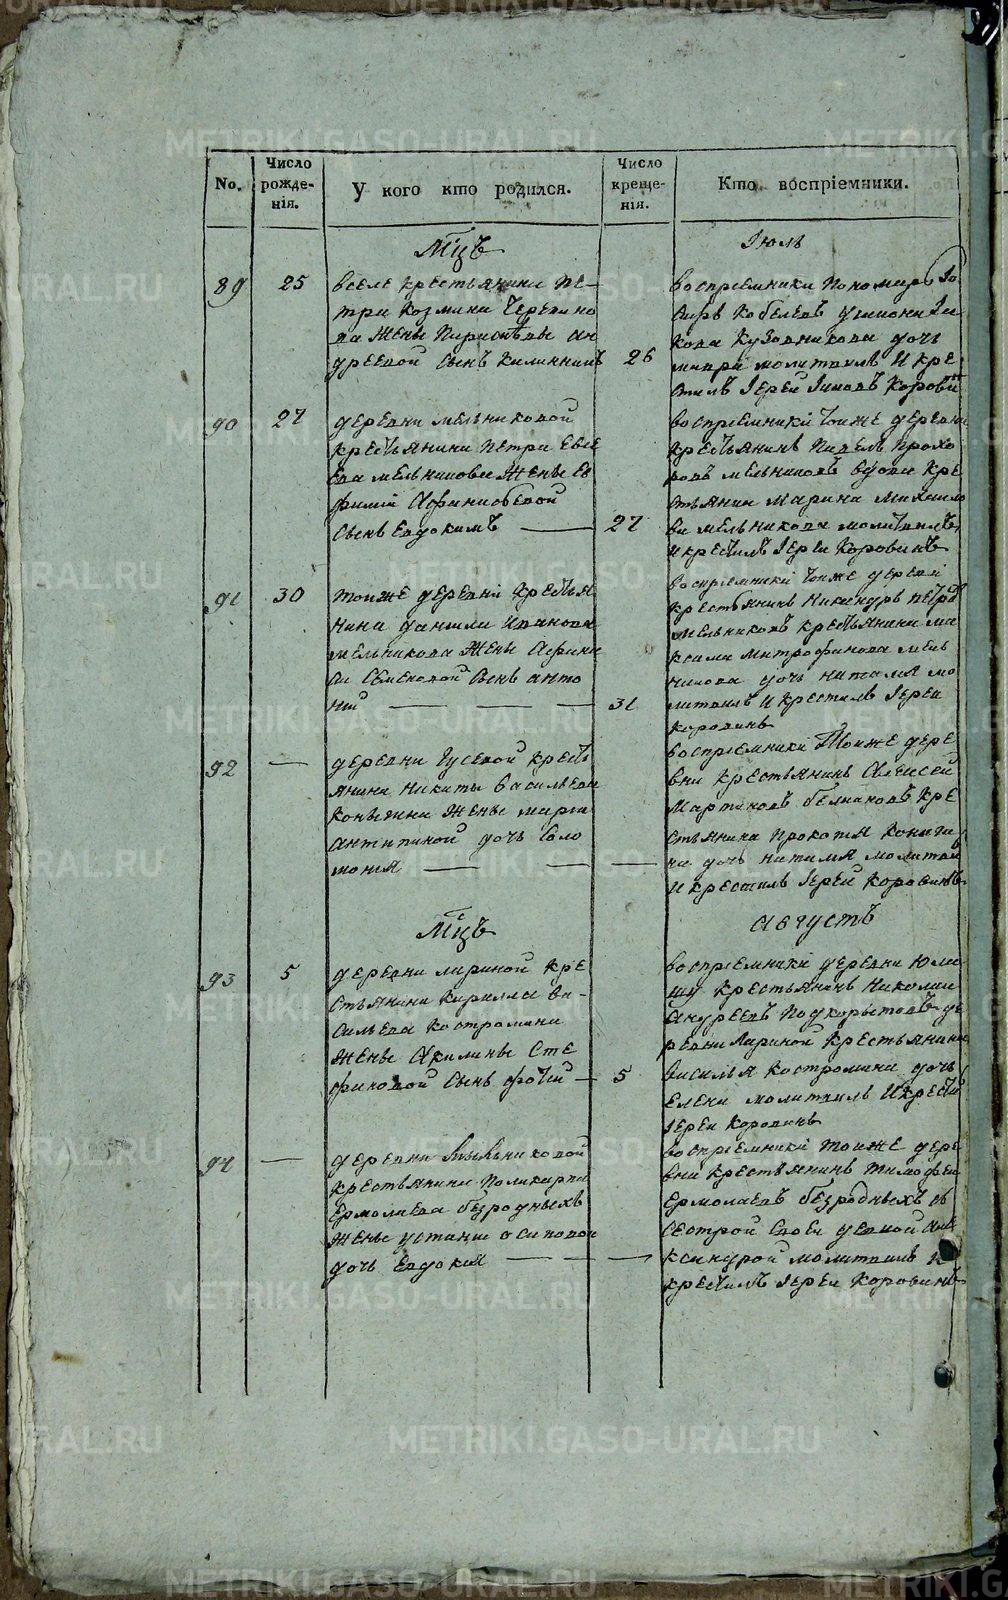 No.
Число рожде-нія.
У кого кто родился.
Число креще-нія.
Кто воспріемники.
Мцъ
Іюль
89 25
вселе крестьянина пе-
тра козмина
ва жены парасковьи ан
дреевой сынъ калинникъ 26
воспріемники пономарь
кова кузовникова дочь
мавра молитвилъ и кре
стилъ іерей Іаковъ Коровинъ
90 27
деревни мельниковой
крестьянина петра евсе
ева мельникова жены ев
фиміи афанасьевой
сынъ евдокимъ 27
воспріемники тоиже деревни
крестьянинъ павелъ прохо
ровъ мельниковъ вдова кре
стьянка марина михаило
ва мельникова молитвилъ
и крестилъ іерей Коровинъ
91 30
тоиже деревни крестья
нина данила иванова
мельникова жены афана
сіи семеновой сынъ анто
ній 31
воспріемники тоиже деревни
крестьянинъ никандръ петровъ
мельниковъ крестьянина ма
ксима митрофанова мель
никова дочь наталя мо
литвилъ и крестилъ іерей
коровинъ
92 —
деревни гусевой кресть
янина никиты васильева
коныгина жены марфы
антипиной дочь соло
монія —
воспріемники тоиже дере
вни крестьянинъ алексей
мартиновъ
стьянина прокопя коныги
на дочь наталя молитвил
и крестилъ іерей коровинъ
Мцъ
Августъ
93 5
деревни лариной кре
стьянина кирилла ва-
сильева костромина
жены акилины сте
фановой сынъ фотій — 5
воспріемники деревни юла
ша крестьянинъ николаи
андреевъ подкорытовъ де
ревни лариной крестьянина
василья костромина дочь
елена молитвилъ и крести
іереи коровинъ
94 —
деревни мыльниковой
крестьянина поликарпа
ермолаева безродныхъ
жены устинии осиповой
дочь евдокія —
воспріемники тоиже дере
вни крестьянинъ тимофеи
ермолаевъ безродныхъ съ
сестрой своей девкой але
ксандрой молитвилъ и
крестилъ іерей коровинъ
METRIKI.GASO-URAL.RU